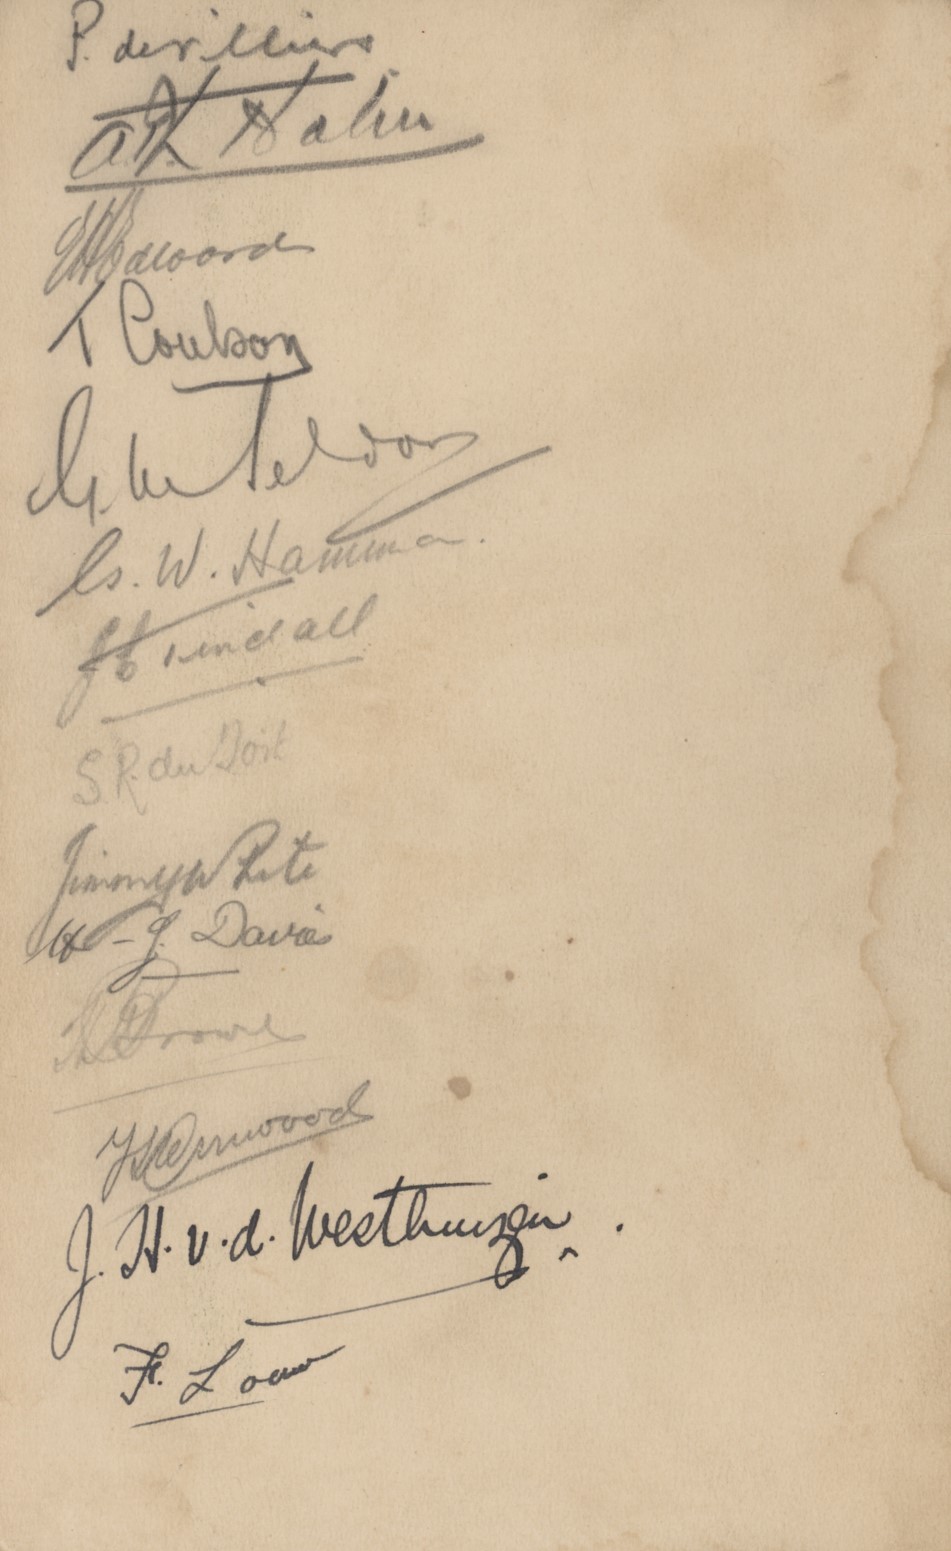 P. de Villiers.
A.K. Hahn
Edward
T Coulson
G. W. Seldon
Cs. W. Hamman.
J E Tindall
S.R. du Toit
Jimmy White
W-J. Davies
Browne
Kenwood
J. H. v. d. Westhuizen.
F. Louw